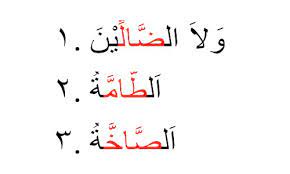 ١. وَلاَ الضَّالِّيْنَ
٢. اَلطَّامَّةُ
٣. اَلصَّاخَّةُ